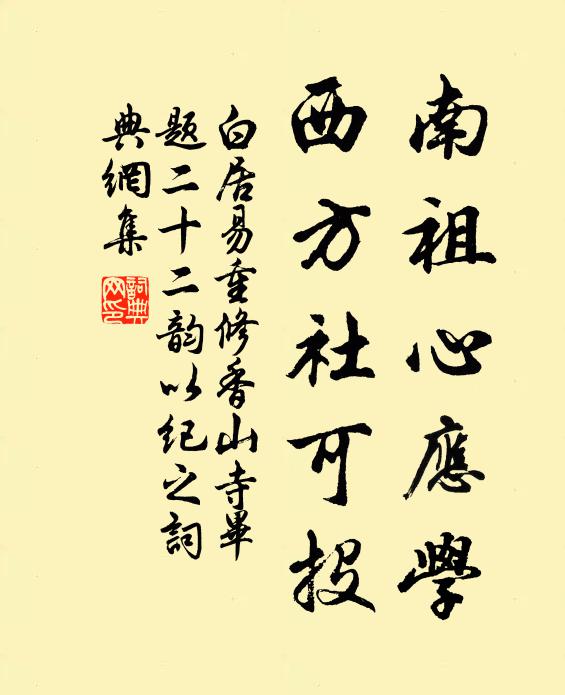 南祖心應學
西方社可投
白居易重修香山寺畢
題二十二韵以纪之詞
典網集
詞典
网印